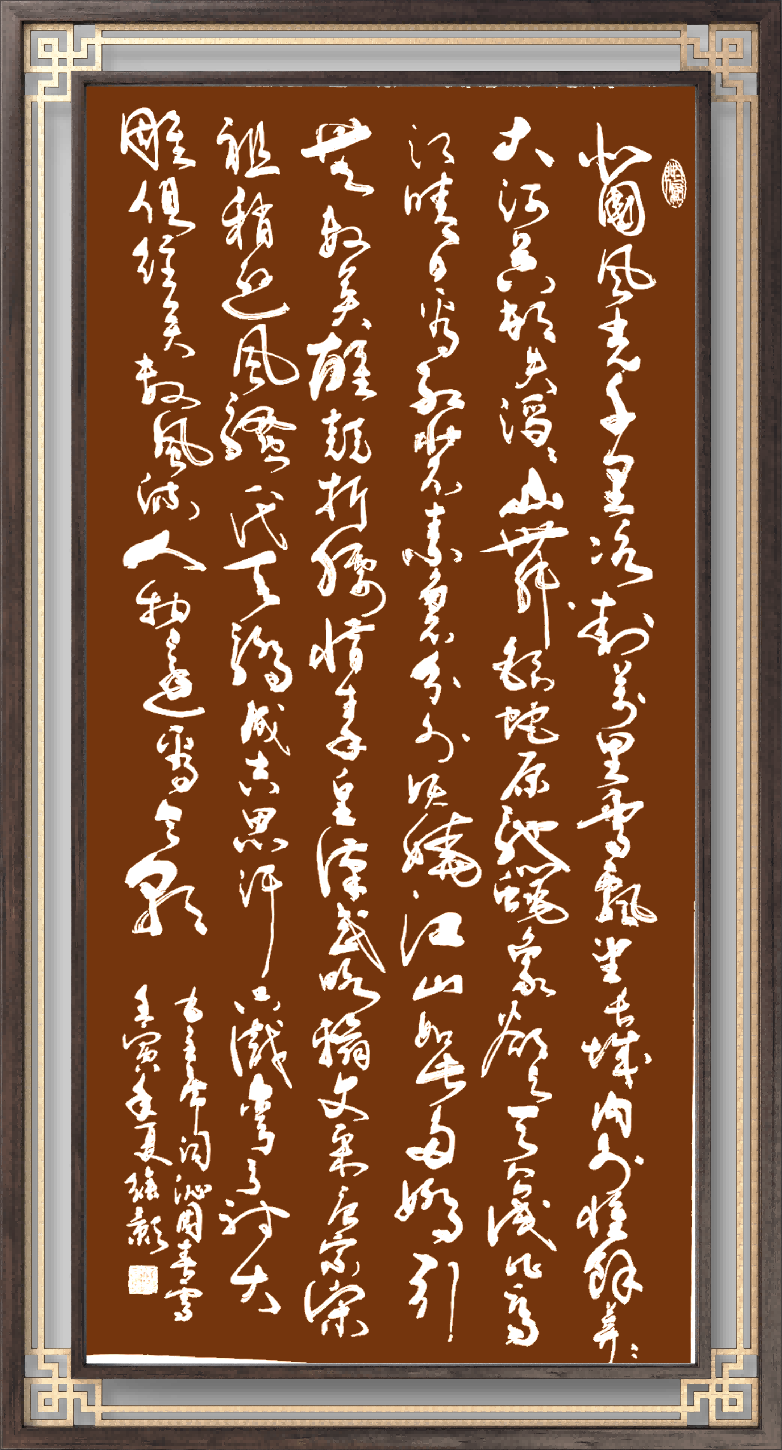 北國風光千里冰封萬里雪飄望長城內外惟餘莽々
大河上下頓失滔々山舞銀蛇原馳蠟象欲與天公試比高
須晴日看紅裝素裹分外妖嬈江山如此多嬌引
無數英雄競折腰惜秦皇漢武略輸文采唐宗宋
祖稍遜風騷一代天驕成吉思汗只識彎弓射大
雕俱往矣數風流人物還看今朝
毛主席詞沁園春雪
壬寅年夏